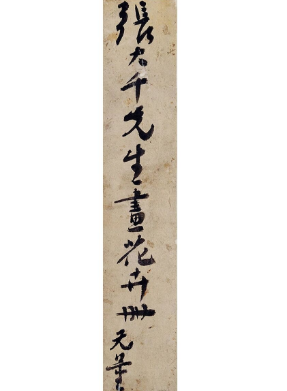 張大千先生畫花卉冊